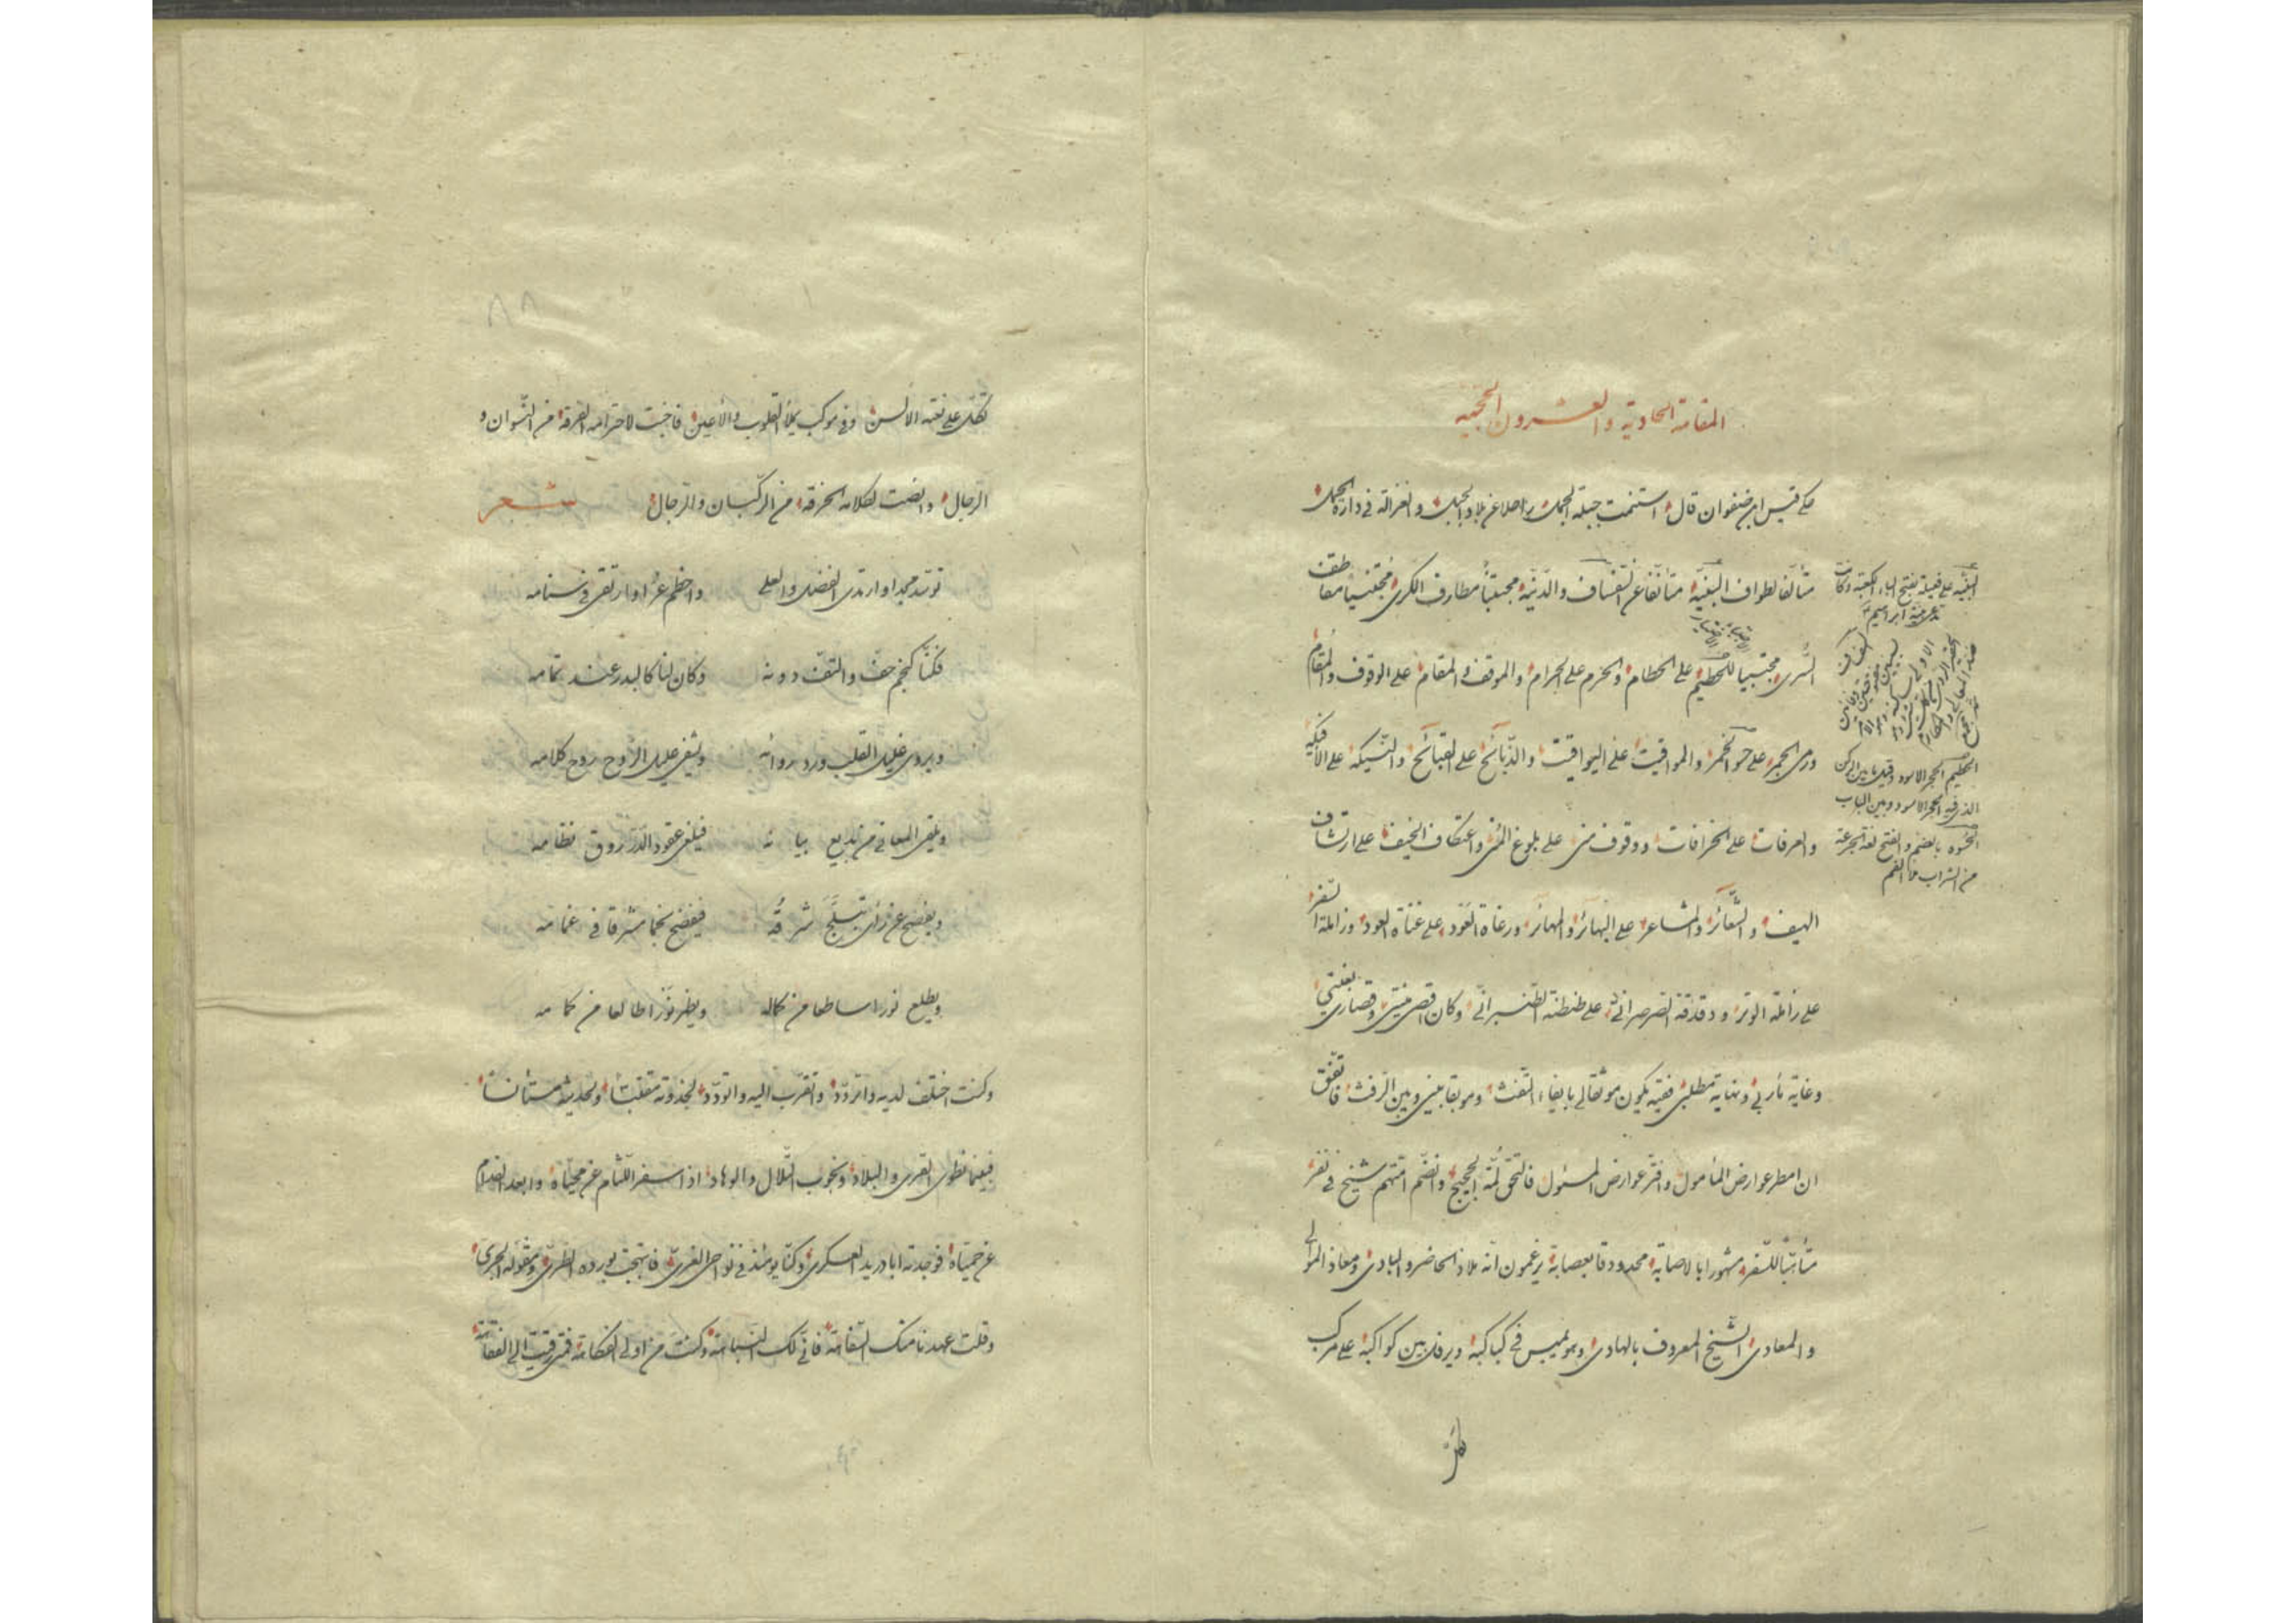 المقامة الحادية والعشرون الحججية
حكى قيس ابن صفوان قال استنمت جبلة الجمل راحلا عن بلاد الجبل والغزالة في دارة الحمل
متألفا لطواف البنيّة متأنّفا عن السفساف والدّنيّة مجتبيًا مطارف الكرى مجتنيًا مقاطف
السّرى مجتبيا للحطيم على الحطام والحرم على الحرام والموقف والمقام على الوقوف والمقام
ورمى الجمر على حسو الخمر والمواقيت على اليواقيت والذّبائح على القبائح والنّسيكة على الافيكة
والعرفات على الخرافات ووقوف منى على بلوغ المنى واعتكاف الخيف على ارتشاف
الهيف والشّعائر والمشاعر على البهائر والمهائر ورغاة العود على غناة العود وزاملة السّفر
على زاملة الوتر ودقدقة الصرصرانى على طنطنة الطّنبرانّى وكان اقصى منيتى وقصارى بغيتي
وغاية مأربي ونهاية مطلبى فقيه يكون موثقا لي بايفاء التّفث وموبقا بينى وبين الرّفث فاتّفق
ان امطر عوارض المأمول وافترّ عوارض المسئول فالتحق لمّة الحجيج وانضمّ امّتهم شيخ في نفر
متأبّبًا للسّفر مشهورا بالاصابة محدودقا بعصابة يزعمون انّه ملاذ الحاضر والبادى ومعاذ الموالى
والمعادى الشّيخ المعروف بالهادى وهو يميس في كباكبه ويرفل بين كواكبه على مركب
البنيّه على فعيلة بفتح الباء الكعبة وكانت
تدعى بنيّة ابراهيم
الحطيم الحجر الاسود وقيل ما بين الركن
الذى فيه الحجر الاسود وبين الباب
الحسوه بالضم والفتح لغة الجرعة
من الشراب ملأ الفم
تكلّ على نعته الالسن وفي موكب يملأ القلوب والأعين فاخبتت لاحترامه الفرقة من النّسوان و
الرجال وانصتت لكلامه الحزقة من الركبان والرجال شعر
توسّد مجدا وارتدى الفضل والعلى واخطم عزا وارتقى في سنامه
فكنّا كنجم حفّ والتفّ دونه وكان لنا كالبدر عند تمامه
ويروى غليل القلب ورد روائه ويشفى عليل الروح روح كلامه
ويلقى المعاني من بديع بيانه فيلغى عقود الدّر روق نظامه
ويفصح عن رأى تبلّج شرقه فيفضح نجما مشرقا في غمامه
ويطلع نورا ساطعا من كماله ويظهر نورا طالعا من كمامه
وكنت اختلف لديه واتردّد واتقرّب اليه واتودّد لجذوته مقتبسًا ولحديثه مستأنسًا
فبينما نطوى القرى والبلاد ونجوب التّلال والوهاد اذا اسفر اللّثام عن محيّاه وابعد الفدام
عن حميّاه فوجدته ابا دريد العسكرى وكنّا يومئذ في نواحى الغرىّ فابتهجت بورده الطّرىّ ومقوله الجرىّ
وقلت عهدنا منك السّفاهة فانّى لك النّباهة وكنت من اولى الفكاهة فمتى رقيت الى الفقاهة